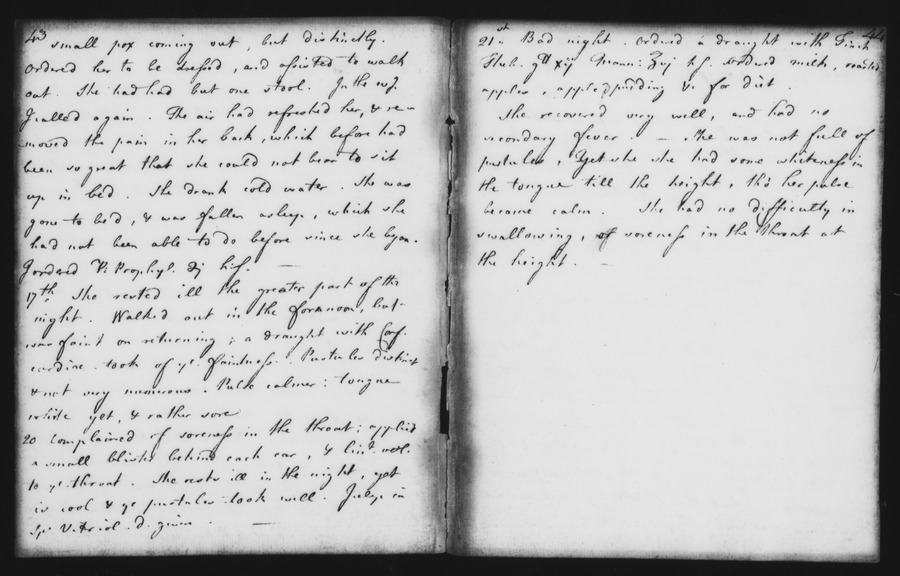 43
small pox coming out, but distinctly.
Ordered her to be dressed, and assisted to walk
out. She had had but one stool. In the
I called again. The air had refreshed her, & re-
moved the pain in her back, which before had
been so great that she could not bear to sit
up in bed. She drank cold water. She was
gone to bed, & was fallen asleep, which she
had not been able to do before since she began.
I ordered
17th. She rested ill the greater part of the
night. Walked out in the forenoon, but
was faint on returning; a draught with Conf.
cardiac. took of ye. faintness. Pustules distinct
& not very numerous. Pulse calmer: tongue
white yet, & rather sore
20 Complained of soreness in the throat; applied
a small blister behind each ear, & lint. vol.
to ye. throat. She rests ill in the night, yet
is cool & ye pustules look well. Julep cū
Sp. Vitriol. d. given.
44
21st. Bad night. Ordered a draught with Tinct
Theb. gtt xij h.s. Ordered milk, roasted
apples, apple pudding &c for diet.
She recovered very well, and had no
secondary fever. — She was not full of
pustules, Yet she she had some whiteness in
the tongue till the height, tho' her pulse
became calm. She had no difficulty in
swallowing, of soreness in the throat at
the height. —